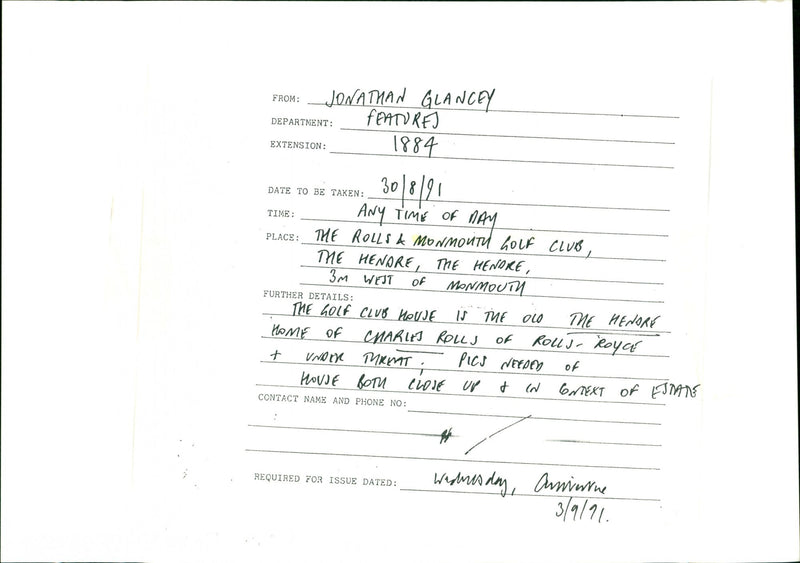 FROM: JONATHAN GLANCEY
DEPARTMENT: FEATURES
EXTENSION: 1884
DATE TO BE TAKEN: 30/8/91
TIME: ANY TIME OF DAY
PLACE: THE ROLLS & MONMOUTH GOLF CLUB,
THE HENDRE, THE HENDRE,
3M WEST OF MONMOUTH
FURTHER DETAILS:
THE GOLF CLUB HOUSE IS THE OLD THE HENDRE
HOME OF CHARLES ROLLS OF ROLLS-ROYCE
+ UNDER THREAT; PICS NEEDED OF
HOUSE BOTH CLOSE UP & IN CONTEXT OF ESTATE
CONTACT NAME AND PHONE NO:
REQUIRED FOR ISSUE DATED: Wednesday,
3/9/91.